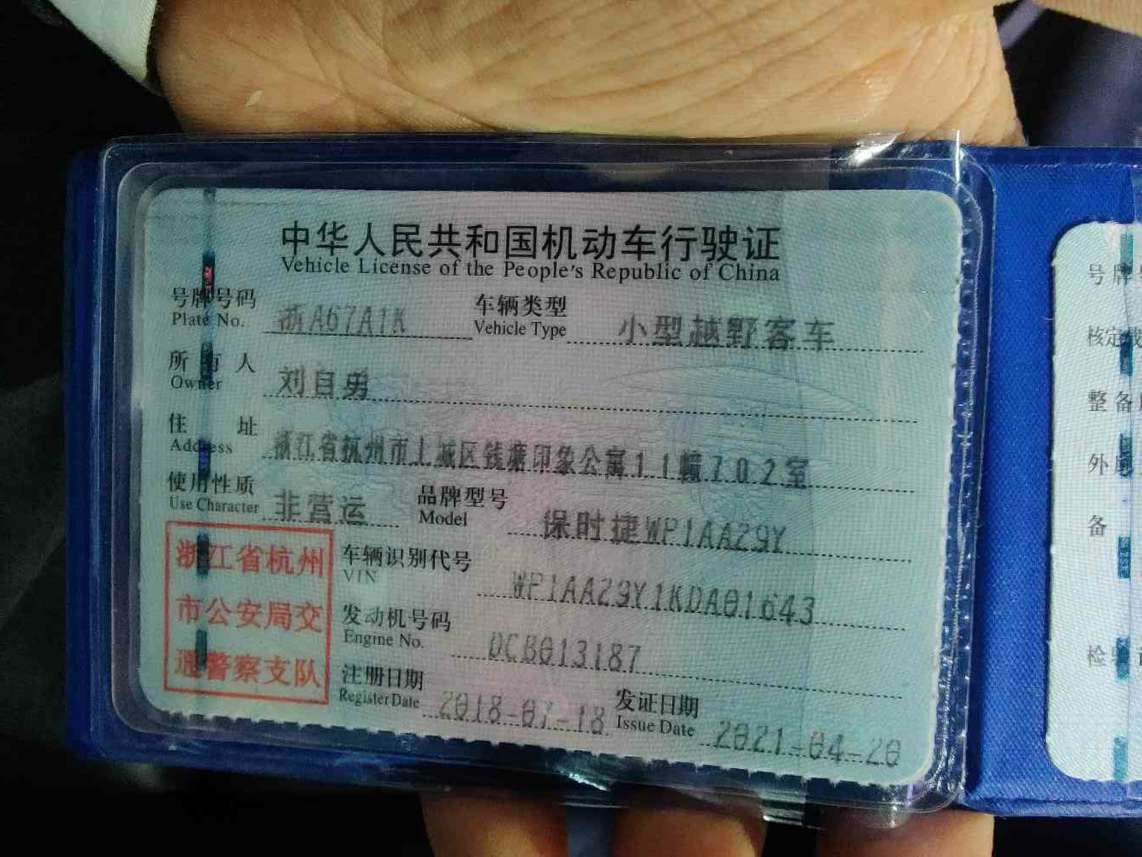 中华人民共和国机动车行驶证
Vehicle License of the People's Republic of China
号牌号码 浙A67A1K 车辆类型 小型越野客车
Plate No. Vehicle Type
所有人 刘自勇
Owner
住址 浙江省杭州市上城区钱塘印象公寓11幢702室
Address
使用性质 非营运 品牌型号 保时捷WP1AA29Y
Use Character Model
浙江省杭州
市公安局交
通警察支队
车辆识别代号 WP1AA29Y1KDA01643
VIN
发动机号码 DCB013187
Engine No.
注册日期 2018-07-18 发证日期 2021-04-20
Register Date Issue Date
号牌
核定
整备
外
备
检